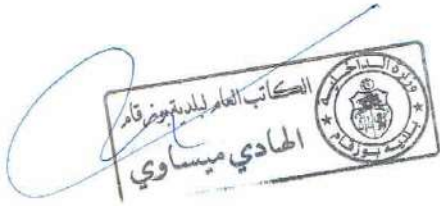 الكاتب العام لبلدية بوزقام
الهادي ميساوي
وزارة الداخلية
بلدية بوزقام